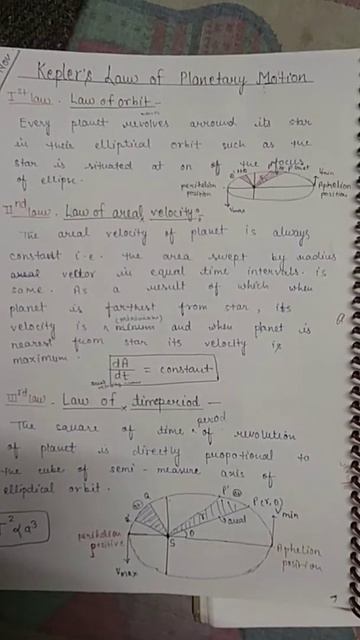 Nov
Kepler's Law of Planetary Motion
Ist law. Law of orbit -
Every planet revolves arround its star
in their elliptical orbit such as the
star is situated at on of the focus
of ellipse.
planet
Vmin
perihelion
position
Aphelion
position
Vmax
IInd law. Law of areal velocity:
The areal velocity of planet is always
constant i.e. the area swept by radius
areal vector in equal time intervals is
same. As a result of which when
planet is farthest from star, its
velocity is minimum and when planet is
nearest from star its velocity is
maximum.
dA
dt = constant
IIIrd law. Law of timeperiod -
The square of time period of revolution
of planet is directly propotional to
the cube of semi-measure axis of
elliptical orbit.
T² ∝ a³
Q
P'
P(r, θ)
Vmin
r
areal
θ
S
perihelion
positive
Aphelion
position
Vmax